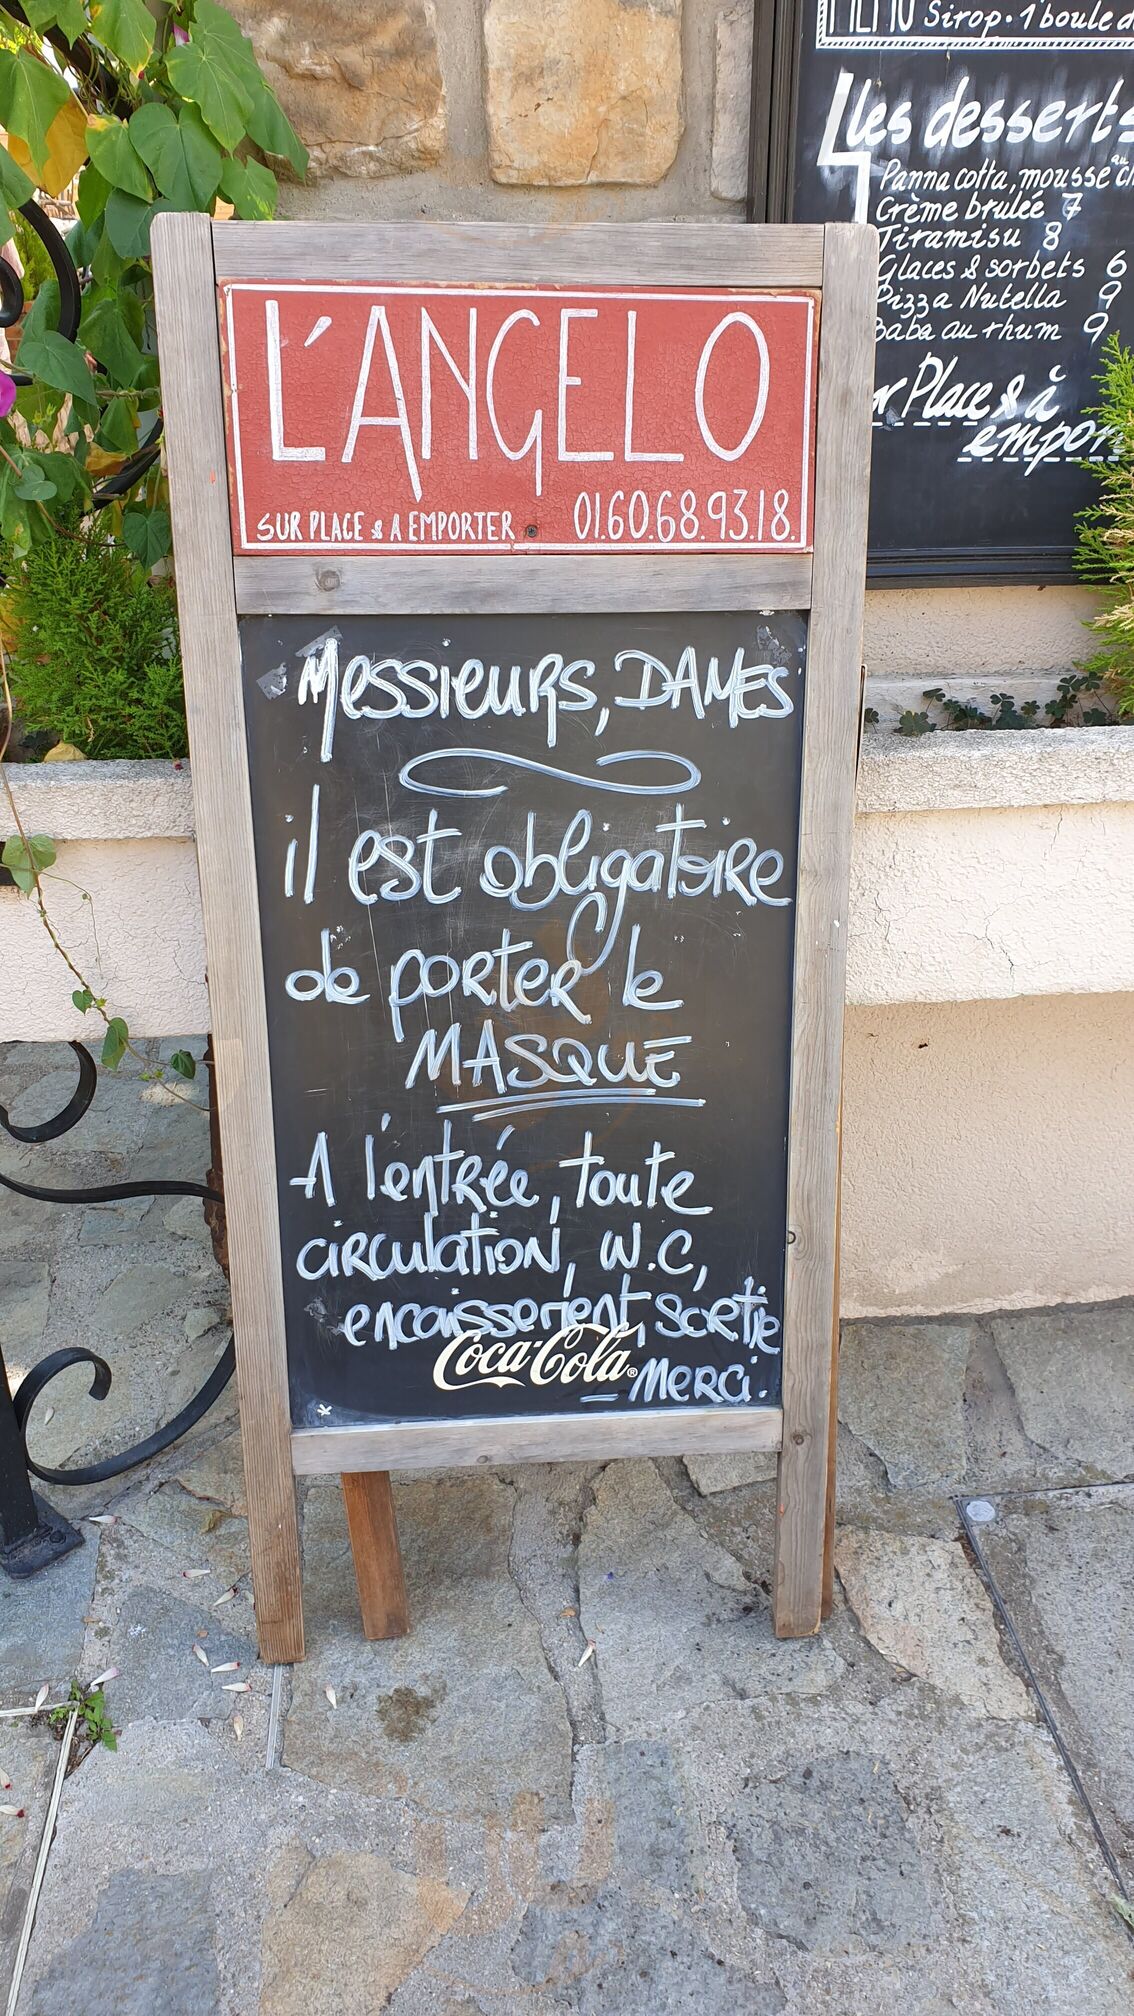 L'ANGELO
SUR PLACE & A EMPORTER 01.60.68.93.18.
Messieurs, DAMES
il est obligatoire
de porter le
MASQUE
A l'entrée, toute
circulation, W.C,
encaissement, sortie
Coca-Cola®
- Merci.
MENU Sirop. 1 boule d
Les desserts
Panna cotta, mousse au
Crème brulée 7
Tiramisu 8
Glaces & sorbets 6
Pizza Nutella 9
Baba au rhum 9
Place & à